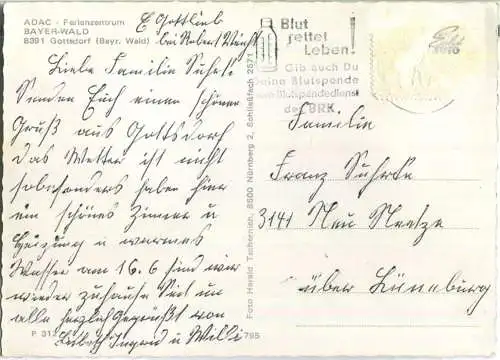 ADAC - Ferienzentrum
BAYER-WALD
8391 Gottsdorf (Bayr. Wald)
E Gottlieb
bei Robert
Liebe Familie Suhrke
Senden Euch einen schönen
Gruß aus Gottsdorf
das Wetter ist nicht
so besonders haben hier
ein schönes Zimmer u
Heizung u warmes
Wasser am 16.6 sind wir
wieder zuhause Seit nun
alle herzlich Gegrüßt von
Ingrid u Willi
P 312
795
Foto Harald Tschernich, 8500 Nürnberg 2, Schließfach 2571
Blut
rettet
Leben!
Gib auch Du
Deine Blutspende
Blutspendedienst
des BRK
Familie
Franz Suhrke
3141 Neu Neetze
über Lüneburg